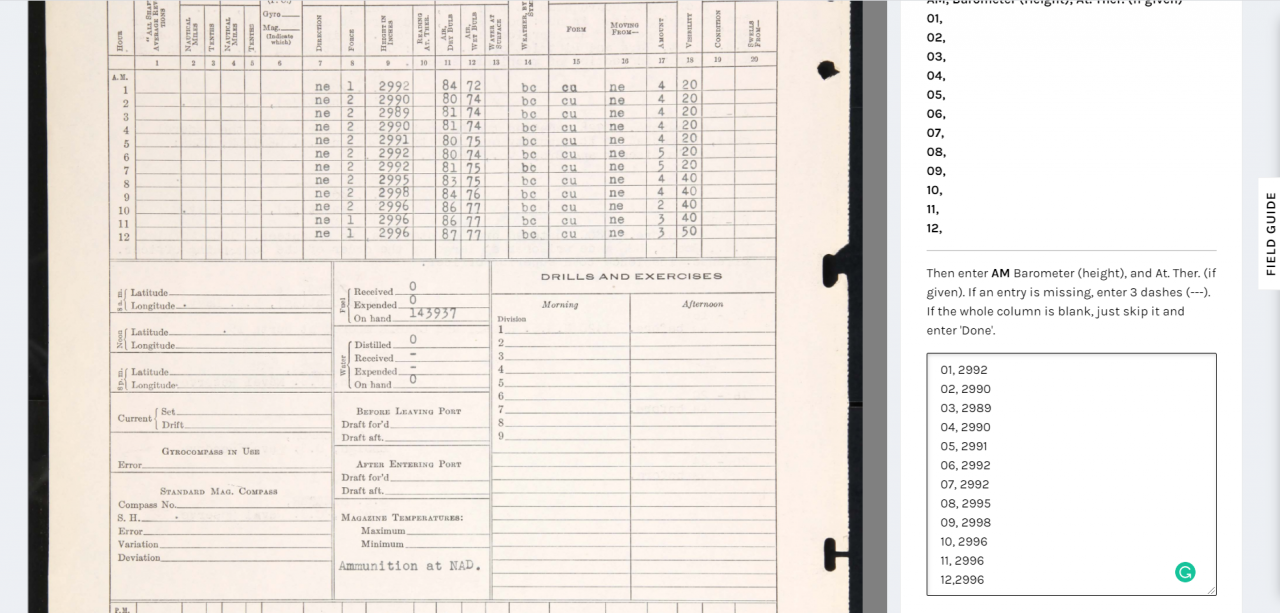 Hour
"All Shaft"
Average Rev
tions
Nautical
Miles
Tenths
Nautical
Miles
Tenths
Gyro
Mag.
(Indicate
which)
Direction
Force
Height in
Inches
Reading
At. Ther.
Air,
Dry Bulb
Air,
Wet Bulb
Water at
Surface
Weather, by
Form
Moving
From—
Amount
Visibility
Condition
Swells
From—
1 2 3 4 5 6 7 8 9 10 11 12 13 14 15 16 17 18 19 20
A.M.
1 ne 1 2992 84 72 bc cu ne 4 20
2 ne 2 2990 80 74 bc cu ne 4 20
3 ne 2 2989 81 74 bc cu ne 4 20
4 ne 2 2990 81 74 bc cu ne 4 20
5 ne 2 2991 80 75 bc cu ne 4 20
6 ne 2 2992 80 74 bc cu ne 5 20
7 ne 2 2992 81 75 bc cu ne 5 20
8 ne 2 2995 83 75 bc cu ne 4 40
9 ne 2 2998 84 76 bc cu ne 4 40
10 ne 2 2996 86 77 bc cu ne 2 40
11 ne 1 2996 86 77 bc cu ne 3 40
12 ne 1 2996 87 77 bc cu ne 3 50
8 a.m.
Latitude
Longitude
Noon
Latitude
Longitude
8 p.m.
Latitude
Longitude
Current
Set
Drift
Gyrocompass in Use
Error
Standard Mag. Compass
Compass No.
S. H.
Error
Variation
Deviation
Fuel
Received 0
Expended 0
On hand 143937
Water
Distilled 0
Received -
Expended -
On hand 0
Before Leaving Port
Draft for'd
Draft aft.
After Entering Port
Draft for'd
Draft aft.
Magazine Temperatures:
Maximum
Minimum
Ammunition at NAD.
DRILLS AND EXERCISES
Morning Afternoon
Division
1
2
3
4
5
6
7
8
9
P.M.
AM, Barometer (Height), At. Ther. (if given)
01,
02,
03,
04,
05,
06,
07,
08,
09,
10,
11,
12,
Then enter AM Barometer (height), and At. Ther. (if
given). If an entry is missing, enter 3 dashes (---).
If the whole column is blank, just skip it and
enter 'Done'.
01, 2992
02, 2990
03, 2989
04, 2990
05, 2991
06, 2992
07, 2992
08, 2995
09, 2998
10, 2996
11, 2996
12,2996
FIELD GUIDE